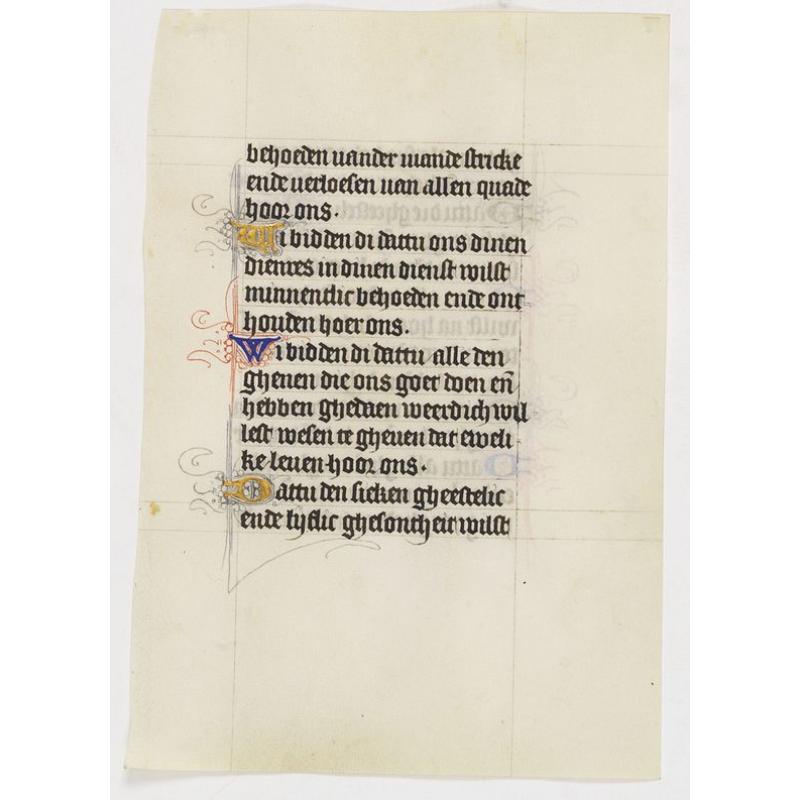 behoeden vander viande stricke
ende verloesen van allen quade
hoor ons.
Wi bidden di dattu ons dinen
dienres in dinen dienst wilst
minnentlic behoeden ende ont
houden hoer ons.
Wi bidden di dattu alle den
ghenen die ons goet doen eñ
hebben ghedaen weerdich wil
lest wesen te gheuen dat eweli
ke leuen hoor ons.
Dattu den sieken gheestelic
ende lyflic ghesontheit wilst